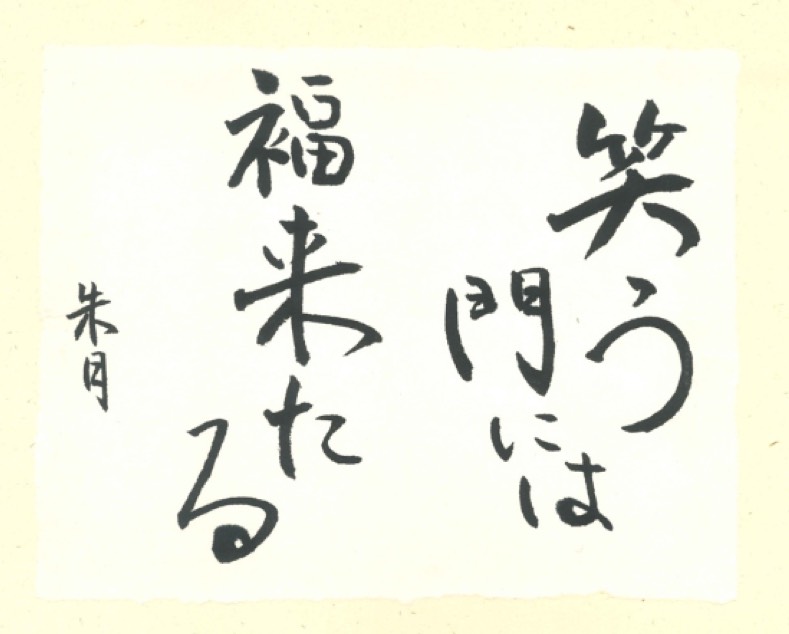 笑う
門には
福来た
る
朱月